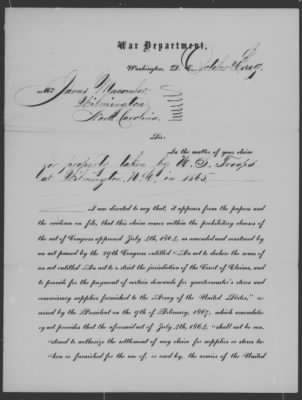 War Department,
Washington, D. C. October
Mr James Macomber
Wilmington
North Carolina.
Sir:
In the matter of your claim
for property taken by U. S. Troops
at Wilmington, N. C. in 1865.
I am directed to say that, it appears from the papers and
the evidence on file, that this claim comes within the prohibitory clauses of
the act of Congress approved July 4th, 1864, as amended and construed by
an act passed by the 39th Congress entitled "An act to declare the sense of
an act entitled An act to restrict the jurisdiction of the Court of Claims, and
to provide for the payment of certain demands for quartermaster's stores and
commissary supplies furnished to the Army of the United States," re-
ceived by the President on the 9th of February, 1867, which amendato-
ry act provides that the aforesaid act of July 4th, 1864, "shall not be con-
strued to authorize the settlement of any claim for supplies or stores ta-
ken or furnished for the use of, or used by, the armies of the United